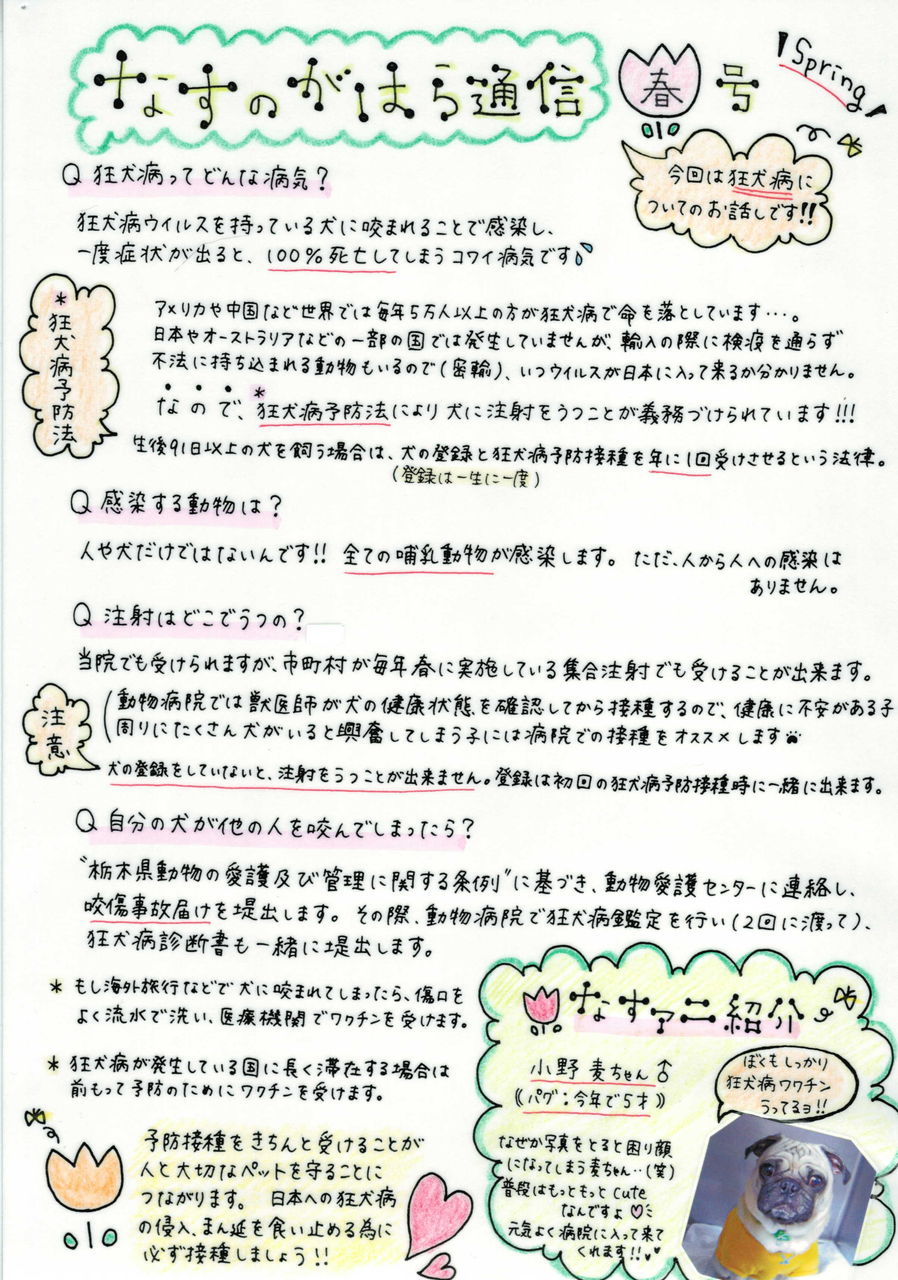 なすのがはら通信 春号 Spring
今回は狂犬病に
ついてのお話しです!!
Q 狂犬病ってどんな病気?
狂犬病ウイルスを持っている犬に咬まれることで感染し、
一度症状が出ると、100%死亡してしまうコワイ病気です
アメリカや中国など世界では毎年5万人以上の方が狂犬病で命を落としています…。
日本やオーストラリアなどの一部の国では発生していませんが、輸入の際に検疫を通らず
不法に持ち込まれる動物もいるので(密輸)、いつウイルスが日本に入って来るか分かりません。
なので、*狂犬病予防法により犬に注射をうつことが義務づけられています!!!
*狂犬病予防法
生後91日以上の犬を飼う場合は、犬の登録と狂犬病予防接種を年に1回受けさせるという法律。
(登録は一生に一度)
Q 感染する動物は?
人や犬だけではないんです!! 全ての哺乳動物が感染します。ただ、人から人への感染は
ありません。
Q 注射はどこでうつの?
当院でも受けられますが、市町村が毎年春に実施している集合注射でも受けることが出来ます。
注意
動物病院では獣医師が犬の健康状態を確認してから接種するので、健康に不安がある子
周りにたくさん犬がいると興奮してしまう子には病院での接種をオススメします
犬の登録をしていないと、注射をうつことが出来ません。登録は初回の狂犬病予防接種時に一緒に出来ます。
Q 自分の犬が他の人を咬んでしまったら?
"栃木県動物の愛護及び管理に関する条例"に基づき、動物愛護センターに連絡し、
咬傷事故届けを堤出します。その際、動物病院で狂犬病鑑定を行い(2回に渡って)、
狂犬病診断書も一緒に堤出します。
* もし海外旅行などで犬に咬まれてしまったら、傷口を
よく流水で洗い、医療機関でワクチンを受けます。
* 狂犬病が発生している国に長く滞在する場合は
前もって予防のためにワクチンを受けます。
予防接種をきちんと受けることが
人と大切なペットを守ることに
つながります。日本への狂犬病
の侵入、まん延を食い止める為に
必ず接種しましょう!!
なすアニ紹介
小野 麦ちゃん♂
《パグ:今年で5才》
ぼくもしっかり
狂犬病ワクチン
うってるヨ!!
なぜか写真をとると困り顔
になってしまう麦ちゃん…(笑)
普段はもっともっとcute
なんですよ♡
元気よく病院に入って来て
くれます!!♥♥